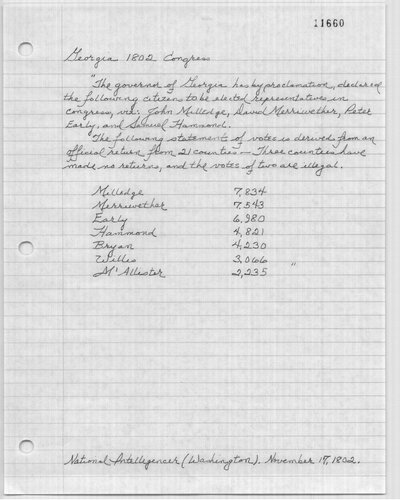 11660
Georgia 1802 Congress
"The governor of Georgia has by proclamation, declared
the following citizens to be elected representatives in
congress, viz: John Milledge, David Merriwether, Peter
Early, and Samuel Hammond.
The following statements of votes is derived from an
official return from 21 counties — Three counties have
made no returns, and the votes of two are illegal.
Milledge 7,834
Merriwether 7,543
Early 6,980
Hammond 4,821
Bryan 4,230
Willis 3,066 "
M'Allister 2,235
National Intelligencer (Washington). November 19, 1802.